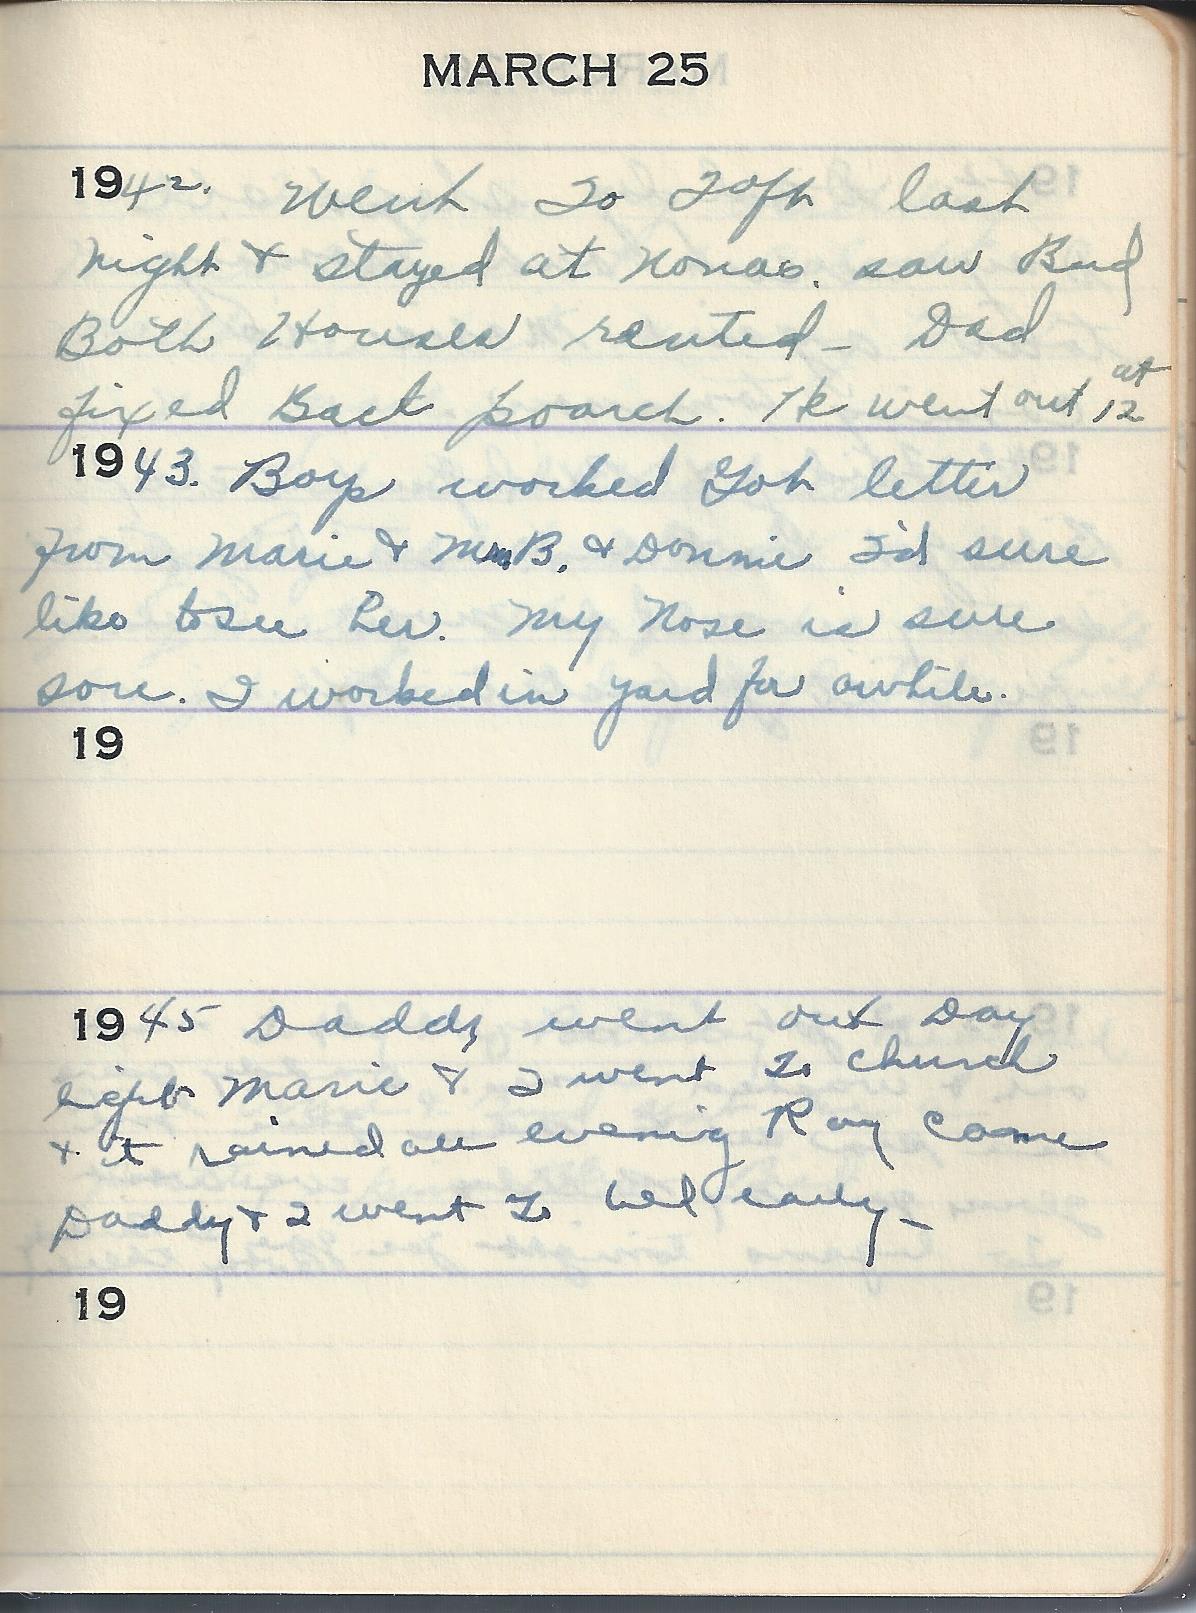 MARCH 25
1942. Went To Taft last
night & stayed at Nonas. saw Bud
Both Houses rented - Dad
fixed Back poarch. He went out at 12
1943. Boys worked Got letter
from Marie & Mrs B. & Donnie I'd sure
like to see her. My Nose is sure
sore. I worked in yard for awhile.
19
1945 Daddy went out Day
light Marie & I went to church
& it rained all evening Ray came
Daddy & I went to bed early -
19